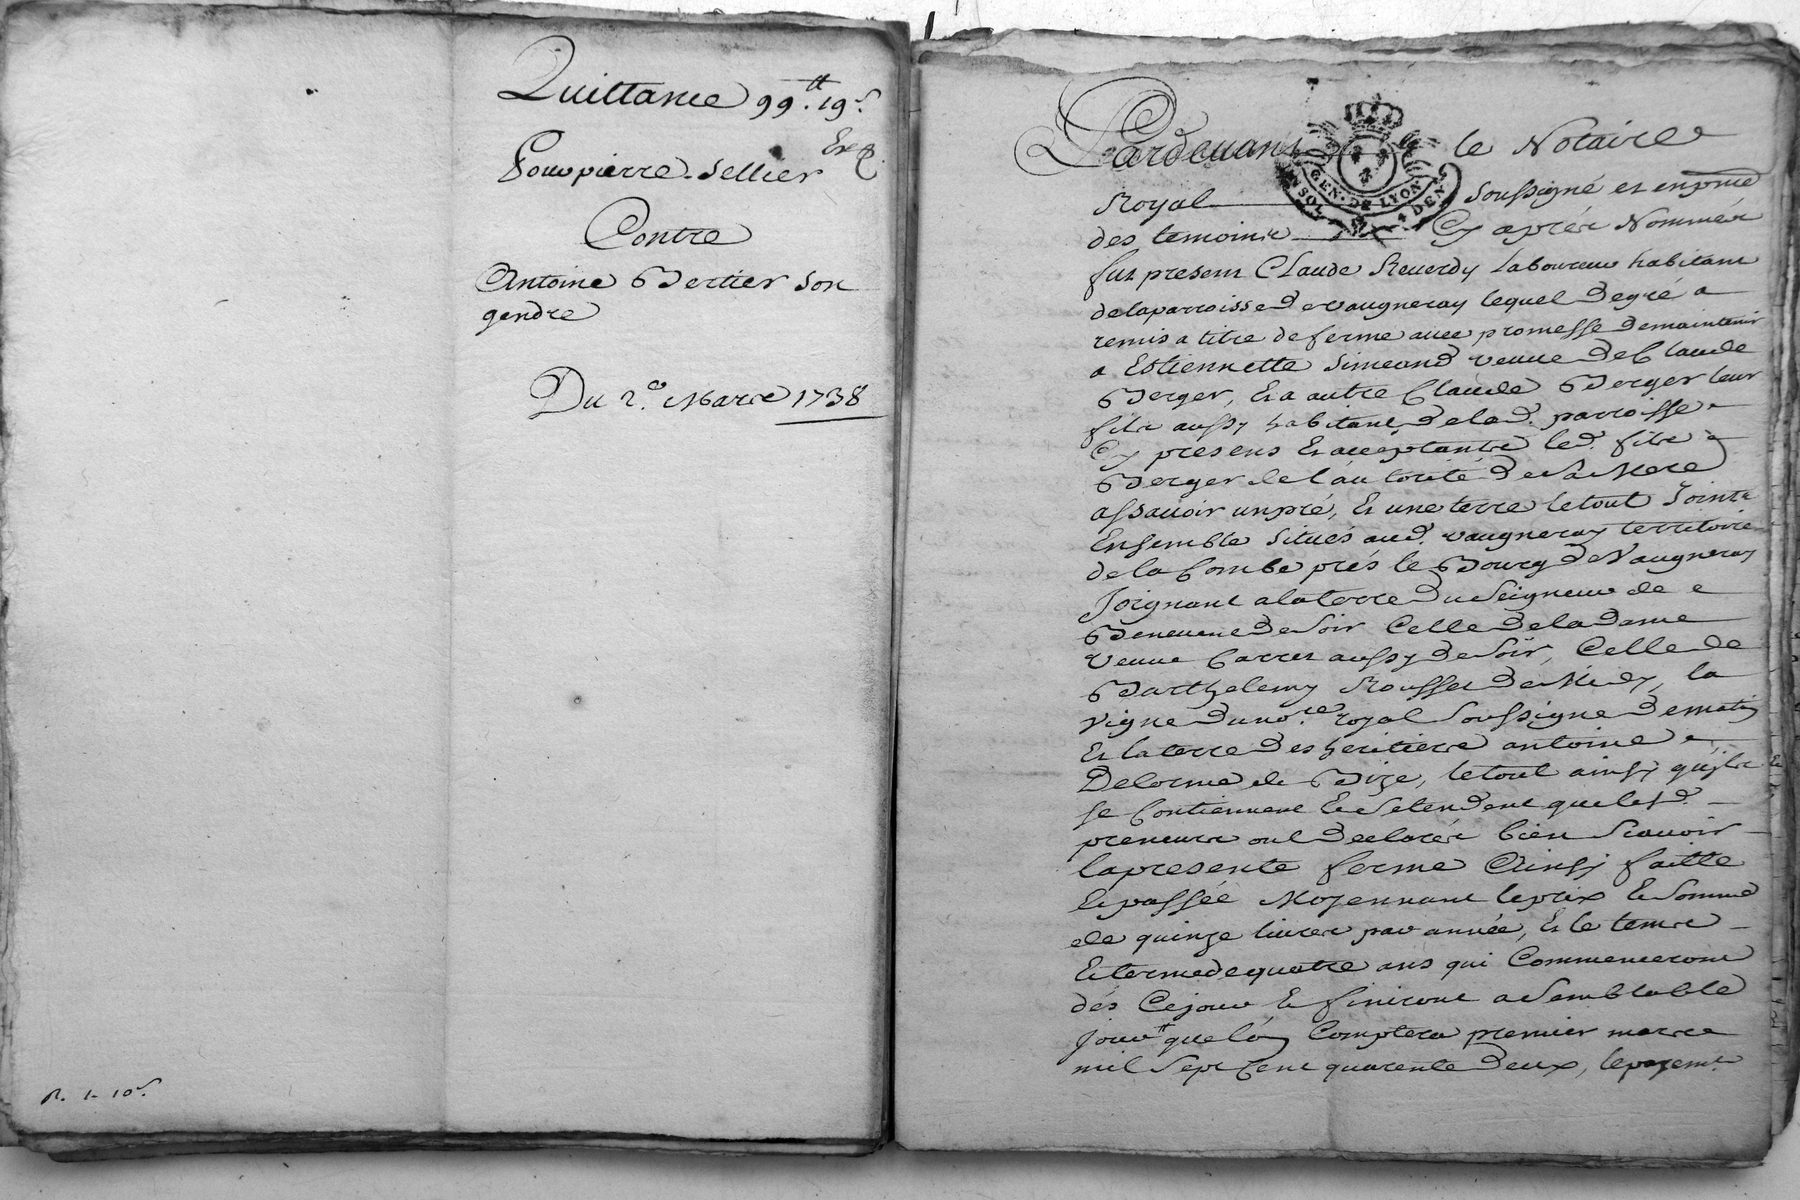 Quittance 99.ᵗᵗ 19.ˢ
Exp
Pour pierre Sellier
Contre
Antoine Bertier Son
gendre
Du 2.ᵉ Mars 1738
R. 1- 10.ˢ
Pardevant le Notaire
GEN. DE LYON
SOL 4 DEN
Royal Soussigné et en pñce
des temoins Cy aprés Nommés
fut present Claude Reverdy Laboureur habitant
de la parroisse de vaugneray lequel de gré a
remis a titre de ferme avec promesse de maintenir
a Estiennette Simeand veuve de Claude
Berger, Et a autre Claude Berger leur
fils aussy habitant de lad. parroisse
Cy presens Et acceptants led. fils
Berger de l'autorité de Sa Mere
assavoir un pré, Et une terre le tout Joints
Ensemble Situés aud. vaugneray territoire
de la Combe prés le Bourg de Vaugneray
Joignant a la terre du Seigneur de
Benevent de Soir Celle de la Dame
veuve Carret aussy de Soir, Celle de
Barthelemy Rousset de Midy, la
vigne du no.ʳᵉ royal Soussigné de matin
Et la terre des heritiers antoine
Delorme de Bize, le tout ainsy qu'ils
se Contiennent Et S'etendent que lesd.
preneurs ont declarés bien Scavoir
la presente ferme Ainsy faitte
Et passée Moyennant le prix Et Somme
de quinze livres par année, Et le tems
Et terme de quatre ans qui Commenceront
dés Ce jour Et finiront a Semblable
Jour que l'on Comptera premier mars
mil Sept Cent quarente deux, le payem.ᵗ